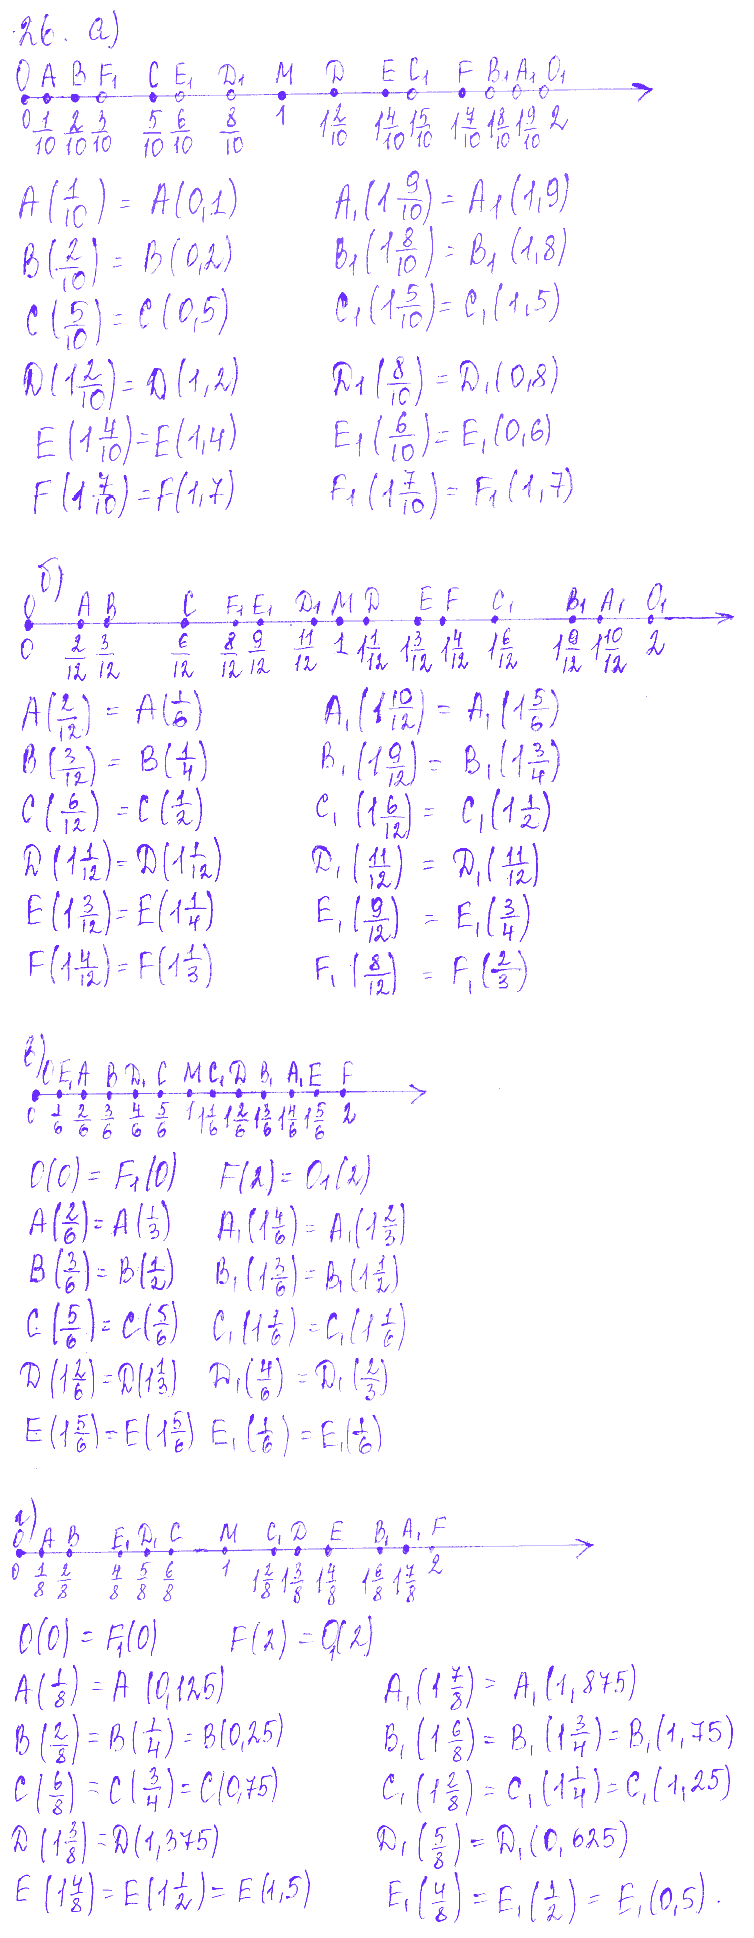 26. а)
O A B F₁ C E₁ D₁ M D E C₁ F B₁ A₁ O₁
0 1/10 2/10 3/10 5/10 6/10 8/10 1 1 2/10 1 4/10 1 5/10 1 7/10 1 8/10 1 9/10 2
A(1/10) = A(0,1) A₁(1 9/10) = A₁(1,9)
B(2/10) = B(0,2) B₁(1 8/10) = B₁(1,8)
C(5/10) = C(0,5) C₁(1 5/10) = C₁(1,5)
D(1 2/10) = D(1,2) D₁(8/10) = D₁(0,8)
E(1 4/10) = E(1,4) E₁(6/10) = E₁(0,6)
F(1 7/10) = F(1,7) F₁(1 7/10) = F₁(1,7)
б)
O A B C F₁ E₁ D₁ M D E F C₁ B₁ A₁ O₁
0 2/12 3/12 6/12 8/12 9/12 11/12 1 1 1/12 1 3/12 1 4/12 1 6/12 1 9/12 1 10/12 2
A(2/12) = A(1/6) A₁(1 10/12) = A₁(1 5/6)
B(3/12) = B(1/4) B₁(1 9/12) = B₁(1 3/4)
C(6/12) = C(1/2) C₁(1 6/12) = C₁(1 1/2)
D(1 1/12) = D(1 1/12) D₁(11/12) = D₁(11/12)
E(1 3/12) = E(1 1/4) E₁(9/12) = E₁(3/4)
F(1 4/12) = F(1 1/3) F₁(8/12) = F₁(2/3)
в)
O E₁ A B D₁ C M C₁ D B₁ A₁ E F
0 1/6 2/6 3/6 4/6 5/6 1 1 1/6 1 2/6 1 3/6 1 4/6 1 5/6 2
O(0) = F₁(0) F(2) = O₁(2)
A(2/6) = A(1/3) A₁(1 4/6) = A₁(1 2/3)
B(3/6) = B(1/2) B₁(1 3/6) = B₁(1 1/2)
C(5/6) = C(5/6) C₁(1 1/6) = C₁(1 1/6)
D(1 2/6) = D(1 1/3) D₁(4/6) = D₁(2/3)
E(1 5/6) = E(1 5/6) E₁(1/6) = E₁(1/6)
г)
O A B E₁ D₁ C M C₁ D E B₁ A₁ F
0 1/8 2/8 4/8 5/8 6/8 1 1 2/8 1 3/8 1 4/8 1 6/8 1 7/8 2
O(0) = F₁(0) F(2) = O₁(2)
A(1/8) = A(0,125) A₁(1 7/8) = A₁(1,875)
B(2/8) = B(1/4) = B(0,25) B₁(1 6/8) = B₁(1 3/4) = B₁(1,75)
C(6/8) = C(3/4) = C(0,75) C₁(1 2/8) = C₁(1 1/4) = C₁(1,25)
D(1 3/8) = D(1,375) D₁(5/8) = D₁(0,625)
E(1 4/8) = E(1 1/2) = E(1,5) E₁(4/8) = E₁(1/2) = E₁(0,5).